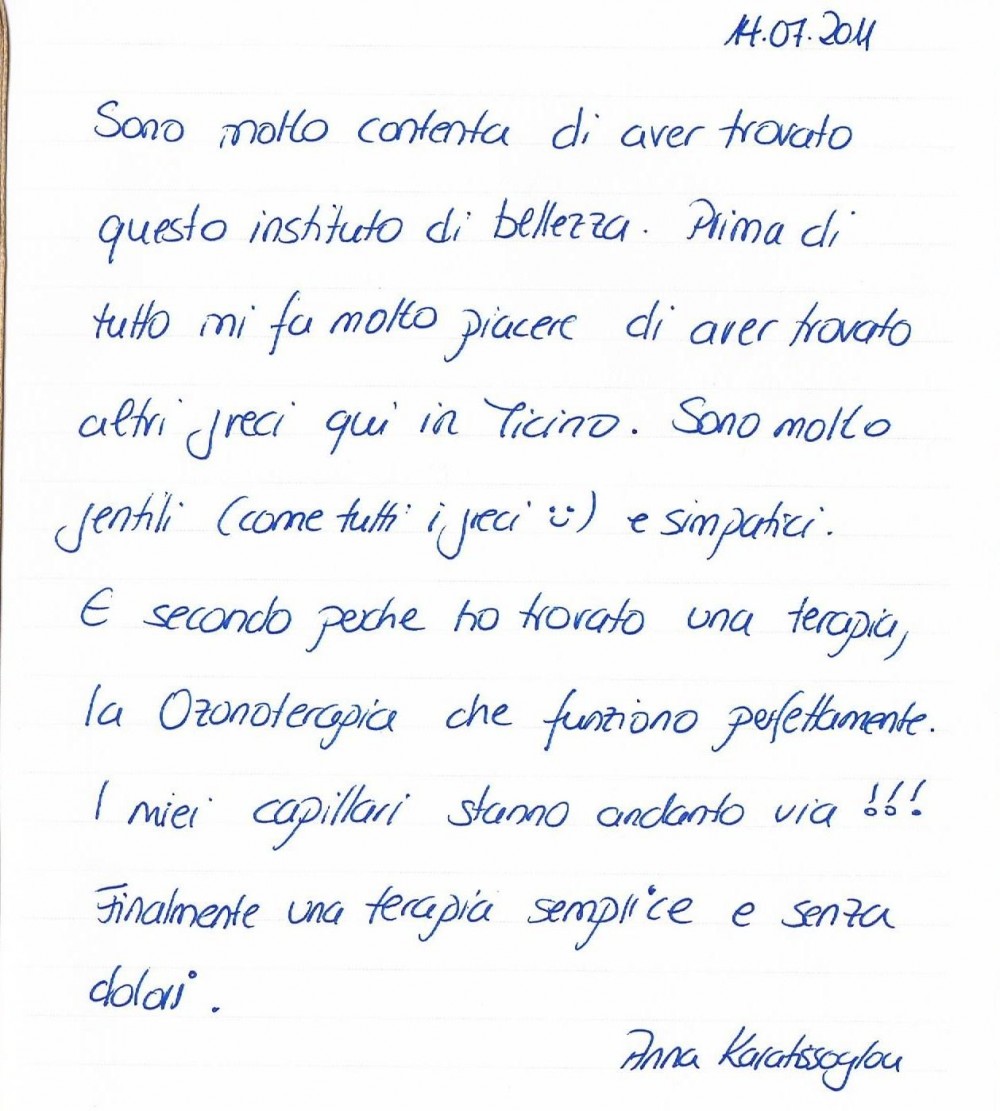 14.07.2011
Sono molto contenta di aver trovato
questo instituto di bellezza. Prima di
tutto mi fa molto piacere di aver trovato
altri greci qui in Ticino. Sono molto
gentili (come tutti i greci ü) e simpatici.
E secondo perche ho trovato una terapia,
la Ozonoterapia che funziono perfettamente.
I miei capillari stanno andanto via !!!
Finalmente una terapia semplice e senza
dolori.
Anna Karatissoglou